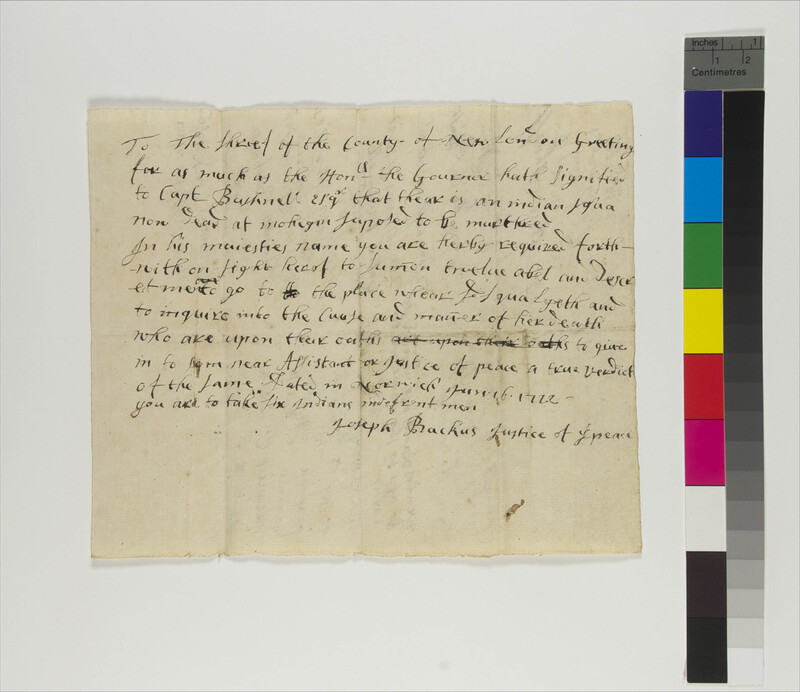 To The Shreef of the County of New London Greeting
for as much as the Honrll the Gournor hath Signified
to Capt Bushnell esqr that thear is an indian squa
now dead at mohegin suposed to be murthred
In his maiesties name you are herby required forth-
-with on sight herof to sumon twelve abel and descr
et men to go to the place whear sd squa Lyeth and
to inquire into the Cause and maner of her death
who are upon thear oaths to give
in to som near Assistant or Justice of peace a true verdict
of the same Dated in Norwich Jun 16. 1722-
you are to take six indians indefrent men
Joseph Backus Justice of ye peace
Inches 1
1 2
Centimetres